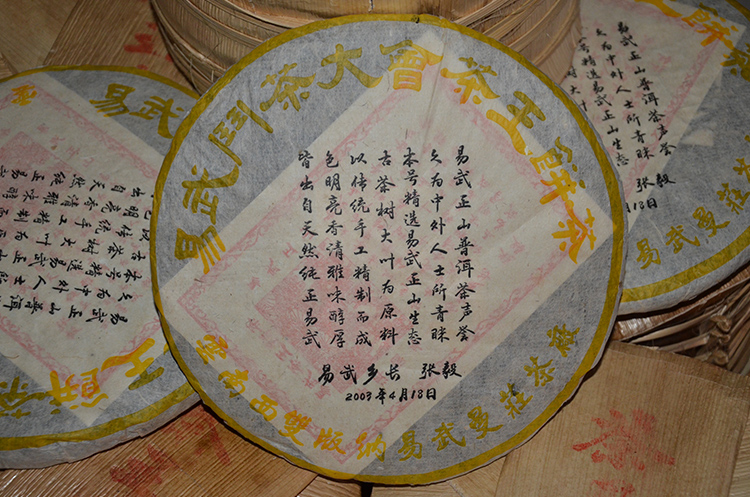 易武鬥茶大會茶王餅茶
易武正山普洱茶声誉
久为中外人士所青睐
本号精选易武正山生态
古茶树大叶为原料
以传统手工精制而成
色明亮香清雅味醇厚
皆出自天然纯正易武
易武乡长 张毅
2003年4月18日
雲南西雙版納易武曼莊茶廠
易武
王餅
餅茶
易武正山普洱茶声誉
久为中外人士所青睐
号精选易武正山生态
张毅
月18日
易武曼莊茶